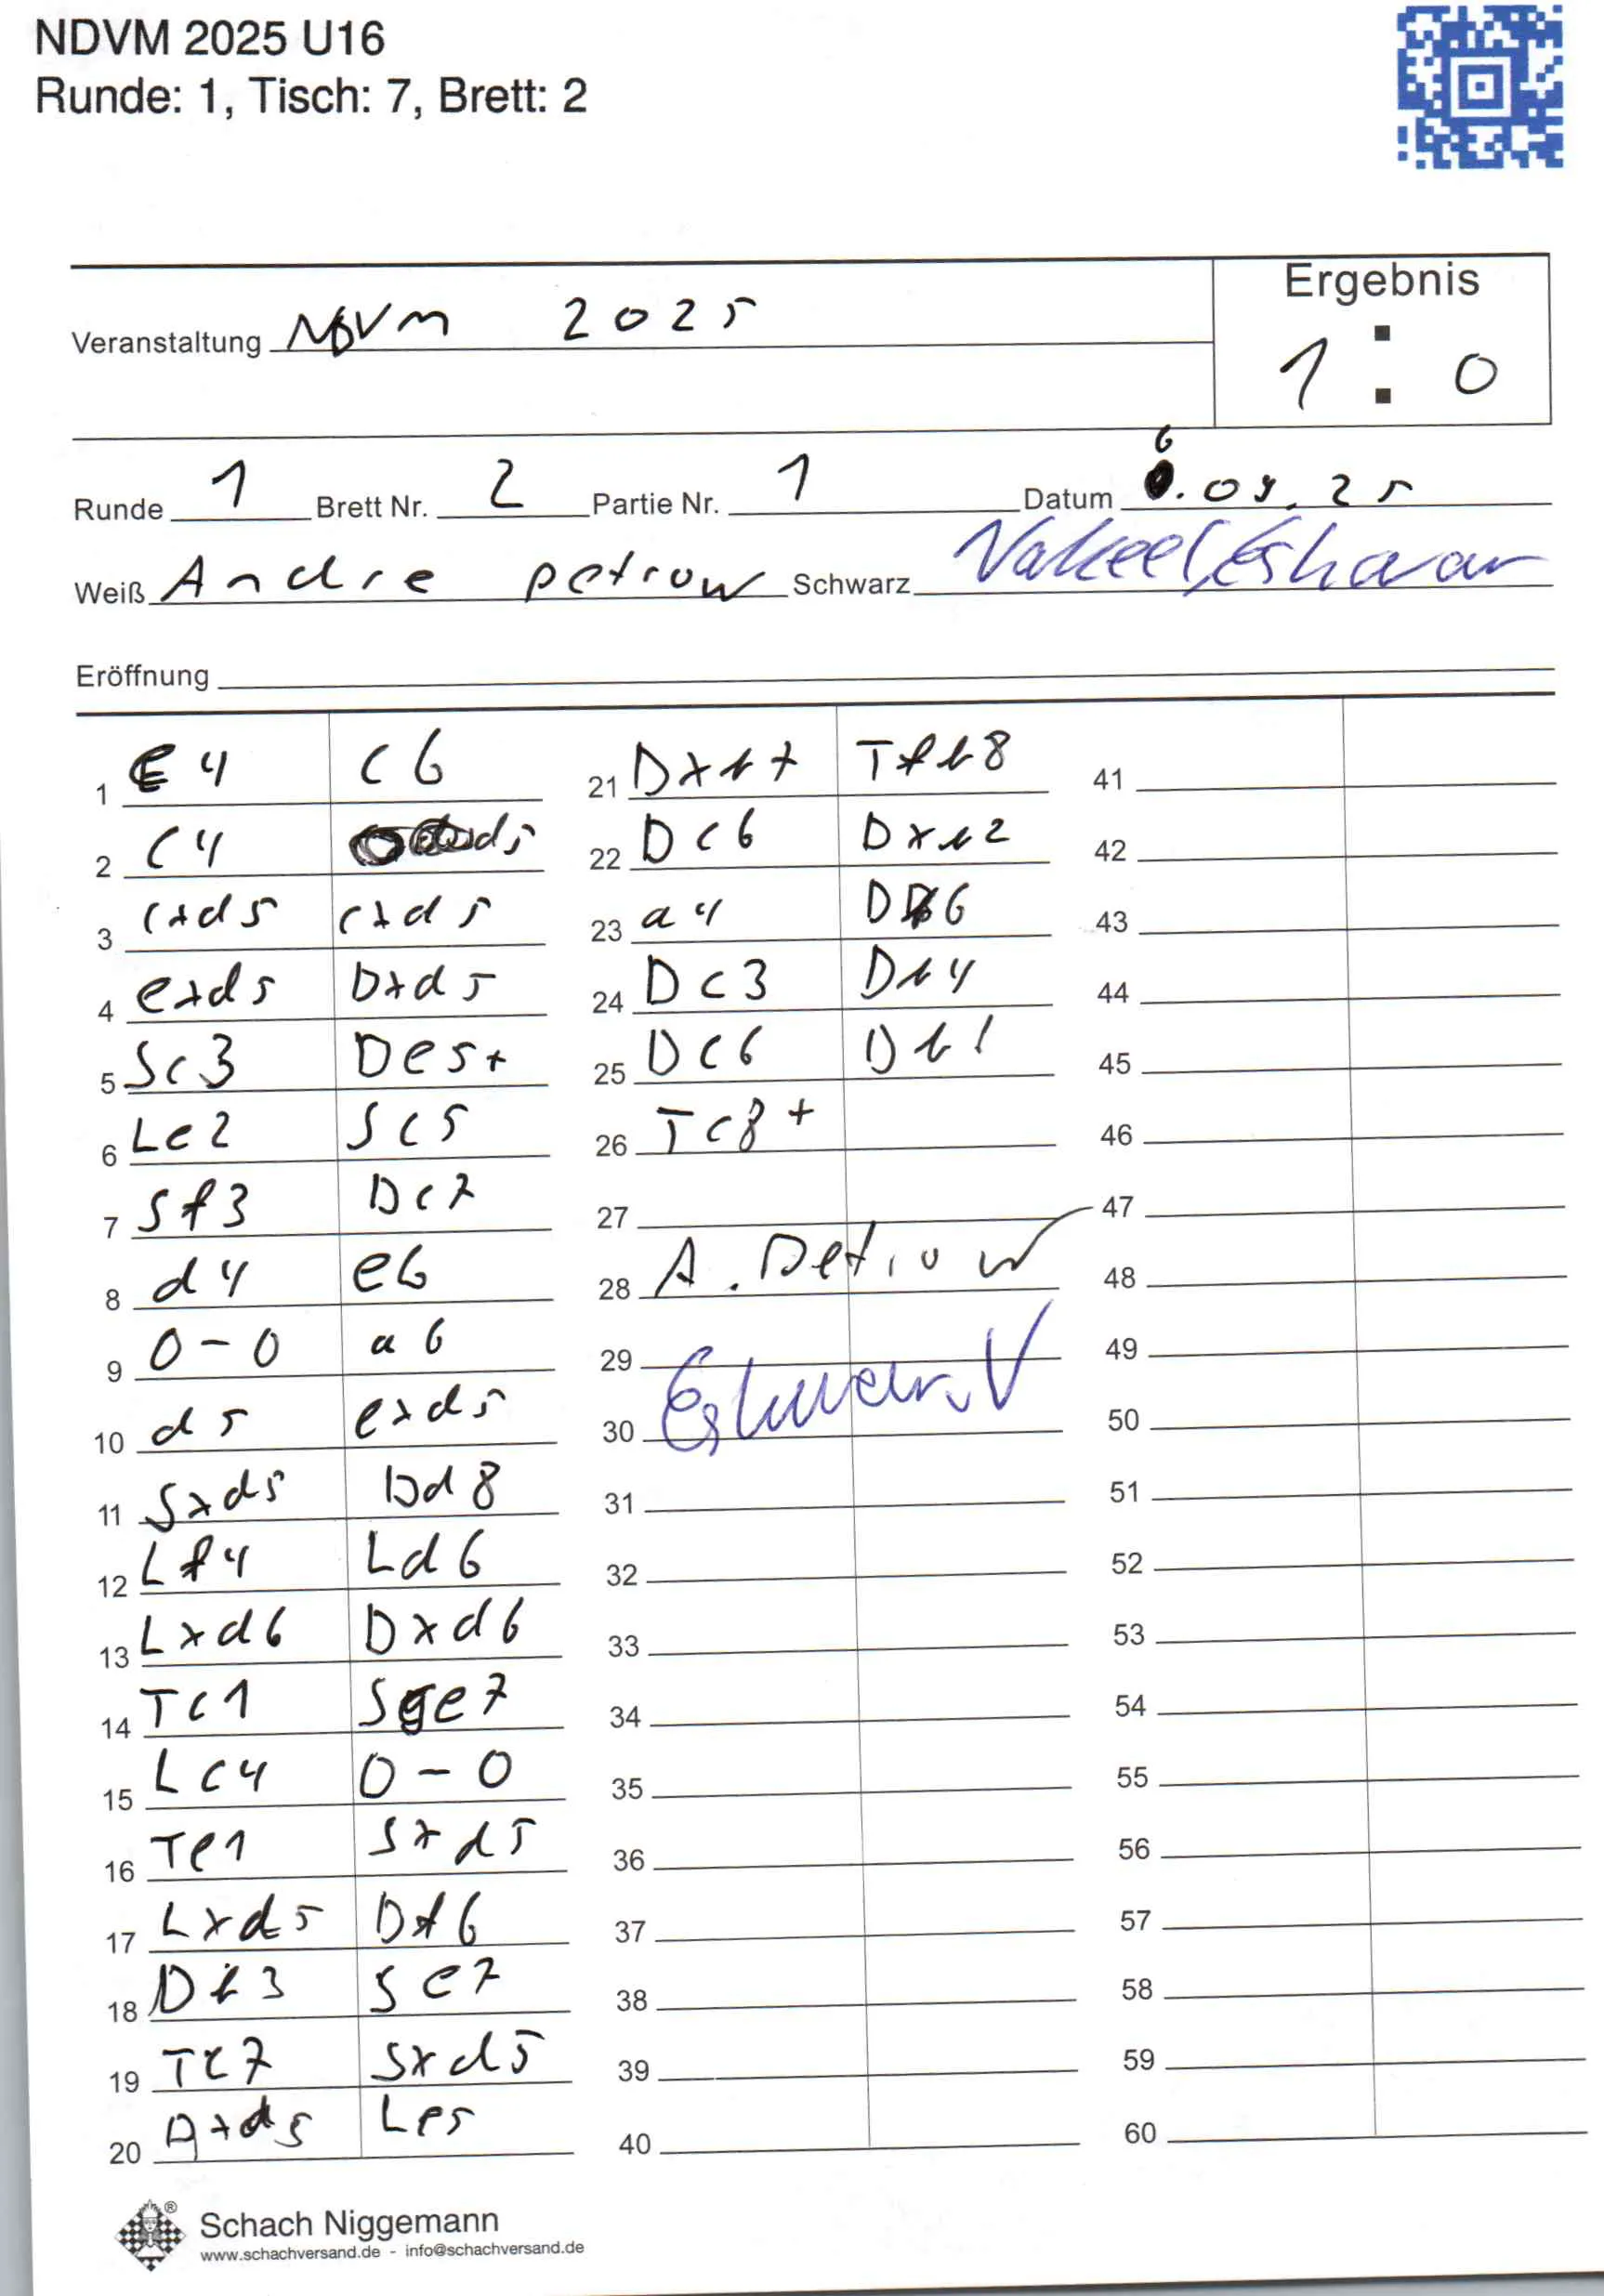 NDVM 2025 U16
Runde: 1, Tisch: 7, Brett: 2
Ergebnis
Veranstaltung NDVM 2025
1 : 0
Runde 1 Brett Nr. 2 Partie Nr. 1 Datum 6.09.25
Weiß Andre petrow Schwarz Vakeel, Eshavar
Eröffnung
1 e4 c6
2 c4 d5
3 cxd5 cxd5
4 exd5 Dxd5
5 Sc3 De5+
6 Le2 Sc5
7 Sf3 Dc7
8 d4 e6
9 0-0 a6
10 d5 exd5
11 Sxd5 Dd8
12 Lf4 Ld6
13 Lxd6 Dxd6
14 Tc1 Sge7
15 Lc4 0-0
16 Te1 Sxd5
17 Lxd5 Df6
18 Db3 Se7
19 Tc7 Sxd5
20 Dxd5 Le5
21 Dxb7 Tfb8
22 Dc6 Dxb2
23 a4 Db6
24 Dc3 Db4
25 Dc6 Db1
26 Tc8+
27
28 A. Petrow
29
30 Eshwar.V
31
32
33
34
35
36
37
38
39
40
41
42
43
44
45
46
47
48
49
50
51
52
53
54
55
56
57
58
59
60
®
Schach Niggemann
www.schachversand.de - info@schachversand.de